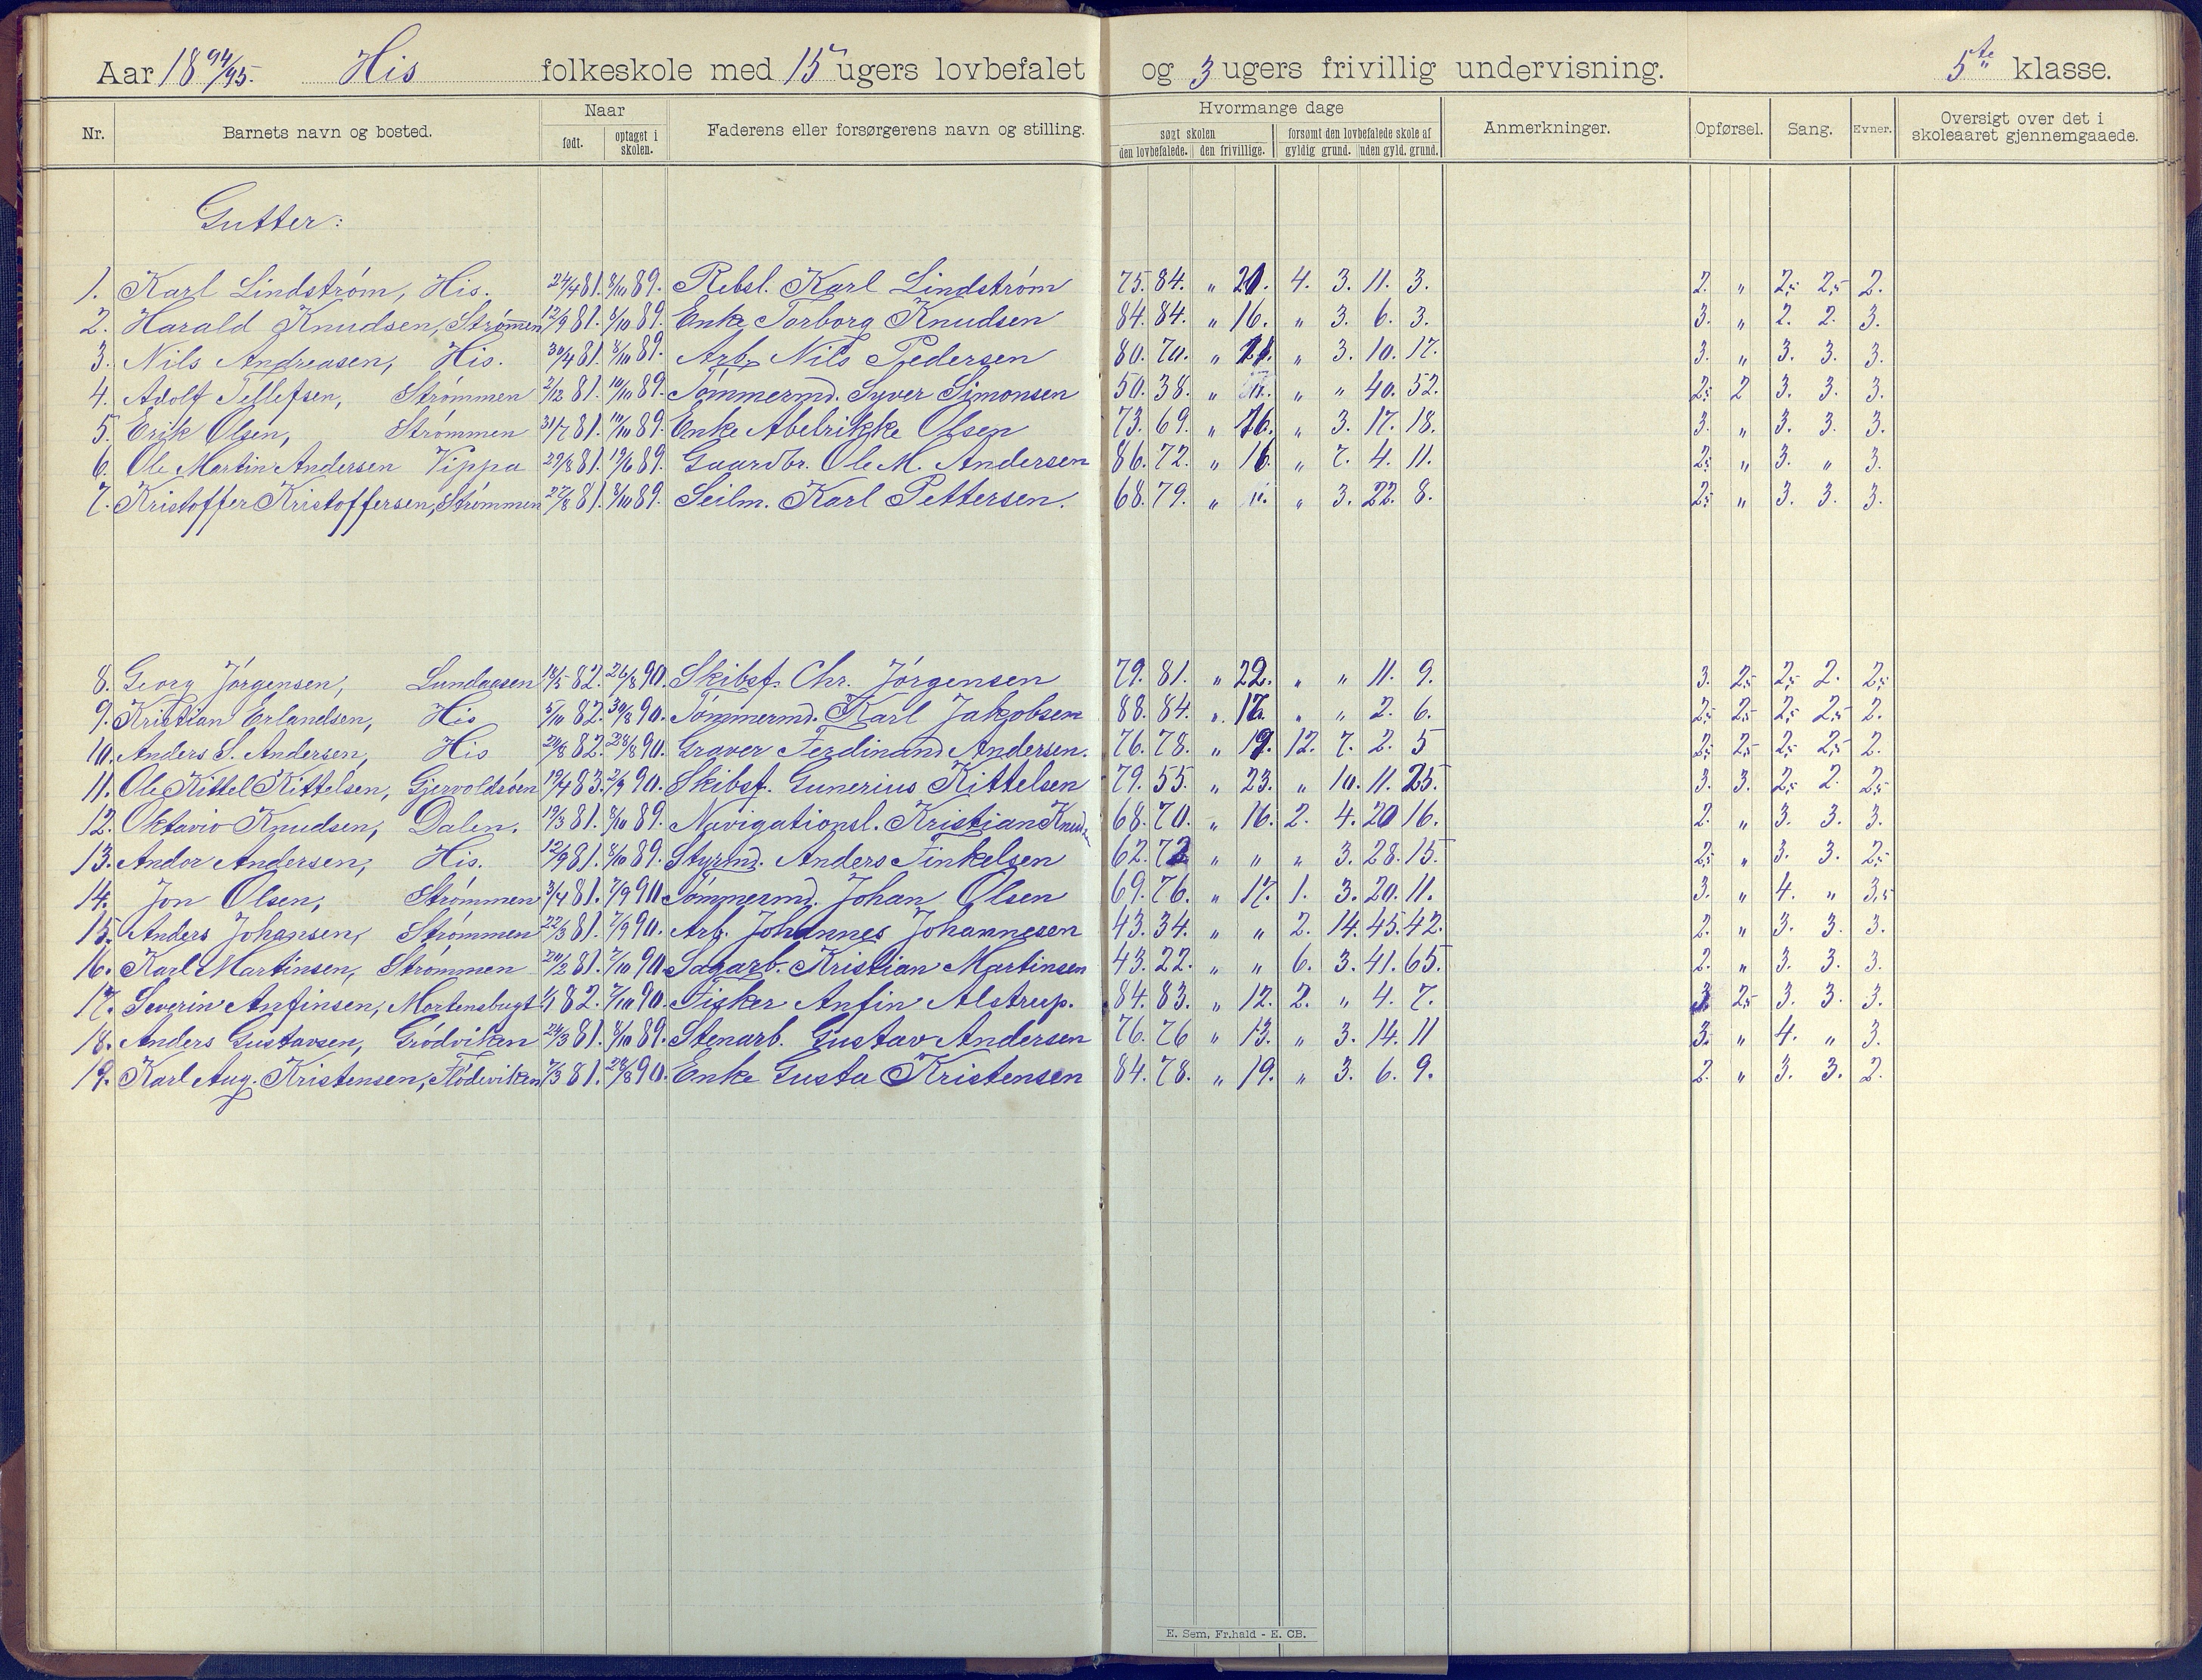 Aar 1894/95. His folkeskole med 15 ugers lovbefalet og 3 ugers frivillig undervisning. 5te klasse.
Nr. Barnets navn og bosted. Naar Faderens eller forsørgerens navn og stilling. Hvormange dage Anmerkninger. Opførsel. Sang. Evner. Oversigt over det i skoleaaret gjennemgaaede.
født. optaget i skolen. søgt skolen forsømt den lovbefalede skole af
den lovbefalede. den frivillige. gyldig grund. uden gyld. grund.
Gutter:
1. Karl Lindstrøm, His. 24/4 81. 8/10 89. Rebsl. Karl Lindstrøm 75. 84. " 20. 4. 3. 11. 3. 2. " 2,5 2,5 2.
2. Harald Knudsen, Strømmen 12/9 81. 8/10 89. Enke Torborg Knudsen 84. 84. " 16. " 3. 6. 3. 3. " 2. 2. 3.
3. Nils Andreasen, His. 30/4 81. 8/10 89. Arb. Nils Pedersen 80. 70. " 3. 10. 17. 3. " 3. 3. 3.
4. Adolf Tellefsen, Strømmen 2/12 81. 10/10 89. Tømmermd. Syver Simonsen 50. 38. " " " 40. 52. 2,5 2 3. 3. 3.
5. Erik Olsen, Strømmen 31/7 81. 10/10 89. Enke Abelrikke Olsen 73. 69. " 16. " 3. 17. 18. 3. " 3. 3. 3.
6. Ole Martin Andersen Vippa 29/8 81. 19/6 89. Gaardbr. Ole M. Andersen 86. 72. " 16. " 7. 4. 11. 2,5 " 3. " 3.
7. Kristoffer Kristoffersen, Strømmen 27/8 81. 8/10 89. Seilm. Karl Pettersen. 68. 79. " " 3. 22. 8. 2,5 " 3. 3. 3.
8. Georg Jørgensen, Lundaasen 18/5 82. 26/8 90. Skibsf. Chr. Jørgensen 79. 81. " 22. " " 11. 9. 3. 2,5 2,5 2. 2,5
9. Kristian Erlandsen, His 5/10 82. 30/8 90. Tømmermd. Karl Jakobsen 88. 84. " 17. " " 2. 6. 2,5 2,5 2,5 2,5 2.
10. Anders S. Andersen, His 24/8 82. 28/8 90. Graver Ferdinand Andersen. 76. 78. " 19. 12. 7. 2. 5 2,5 2,5 2,5 2,5 2.
11. Ole Kittel Kittelsen, Gjervoldsøen 19/4 83. 2/9 90. Skibsf. Gunerius Kittelsen 79. 55. " 23. " 10. 11. 25. 3. 3. 2,5 2. 2,5
12. Oktavio Knudsen, Dalen. 19/3 81. 8/10 89. Navigationsl. Kristian Knuds. 68. 70. " 16. 2. 4. 20 16. 2. " 3. 3. 3.
13. Andor Andersen, His. 12/9 81. 8/10 89. Styrmd. Anders Finkelsen 62. 72 " " " 3. 28. 15. 2,5 " 3. 3. 2,5
14. Jon Olsen, Strømmen 3/4 81. 7/9 90. Tømmermd. Johan Olsen 69. 76. " 17. 1. 3. 20. 11. 3. " 4. " 3,5
15. Anders Johansen, Strømmen 22/3 81. 7/9 90. Arb. Johannes Johannesen 43. 34. " " 2. 14. 45. 42. 2. " 3. 3. 3.
16. Karl Martinsen, Strømmen 20/2 81. 7/10 90. Sagarb. Kristian Martinsen 43. 22. " " 6. 3. 41. 65. 2. " 3. 3. 3.
17. Severin Anfinsen, Mortensbugt 1/1 82. 7/10 90. Fisker Anfin Alstrup. 84. 83. " 12. 2. " 4. 7. 3 2,5 3. 3. 3.
18. Anders Gustavsen, Grødviken 24/3 81. 8/10 89. Stenarb. Gustav Andersen 76. 76 " 13. " 3. 14. 11 3. " 4. " 3.
19. Karl Aug. Kristensen, Flødeviken 7/3 81. 28/8 90. Enke Gusta Kristensen 84. 78. " 19. " 3. 6. 9. 2. " 3. 3. 2.
E. Sem, Fr.hald - E. CB.